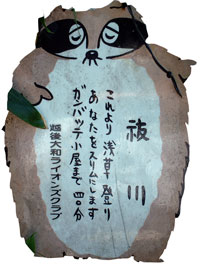 祓川
これより浅草登り
あなたをスリムにします
ガンバッテ小屋まで四〇分
越後大和ライオンズクラブ